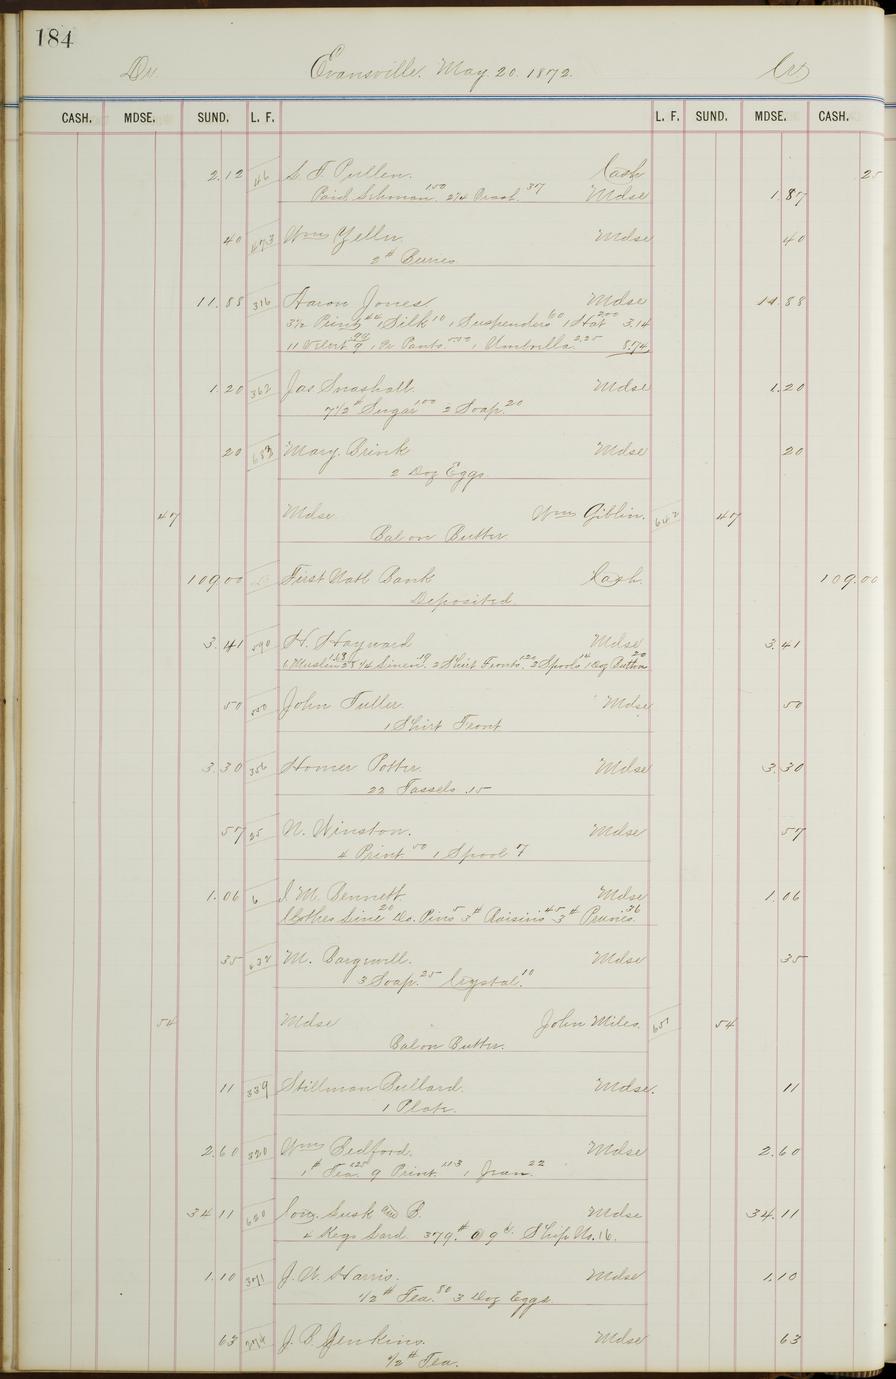 184
Dr. Evansville. May. 20. 1872. Cr.
CASH. MDSE. SUND. L. F. L. F. SUND. MDSE. CASH.
2.12 46 S. F. Pullen. Cash 25
Paid 1.50 2 1/4 37 Mdse 1.87
40 473 Wm Yelln. Mdse 40
2 #
11.88 316 Aaron Jones. Mdse 11.88
3 1/2 Print 44 1 Silk 10 1 Suspenders 60 1 Hat 200 3.14
11 99 9 1 Pr Pants 550 1 Umbrella 2.25 8.74
1.20 362 Jas Snashall. Mdse 1.20
7 1/2 # Sugar 100 2 Soap. 20
20 683 Mary. Brink Mdse 20
2 Doz Eggs
47 Mdse Wm Giblin. 642 47
Bal on Butter
109.00 First Natl Bank Cash. 109.00
Deposited.
3.41 590 H. Hayward Mdse 3.41
Muslin 1/4 Linen 19 2 Shirt Fronts. 120 2 Spools 14 1 Doz Button 20
50 550 John Fuller. Mdse 50
1 Shirt Front
3.30 356 Homer Potter. Mdse 3.30
22 Tassels .15
57 25 N. Winston. Mdse 57
4 Print. 50 1 Spool 7
1.06 6 I. M. Bennett. Mdse 1.06
Clothes Line 20 Do. Pins 5 3 # Raisins 45 3 # Prunes. 36
35 632 M. Bargwell. Mdse 35
3 Soap. 25 Crystal. 10
54 Mdse John Miles. 651 54
Bal on Butter.
11 339 Stillman Bullard. Mdse. 11
1 Plate.
2.60 320 Wm Bedford. Mdse 2.60
1 # Tea 125 9 Print. 113 1 Jean 22
34.11 620 Cong. Lusk and B. Mdse 34.11
4 Kegs Lard 379. # @ 9 ¢. Ship No. 16.
1.10 371 J. W. Harris. Mdse 1.10
1/2 # Tea. 80 3 Doz Eggs.
63 274 J. B. Jenkins. Mdse 63
1/2 # Tea.